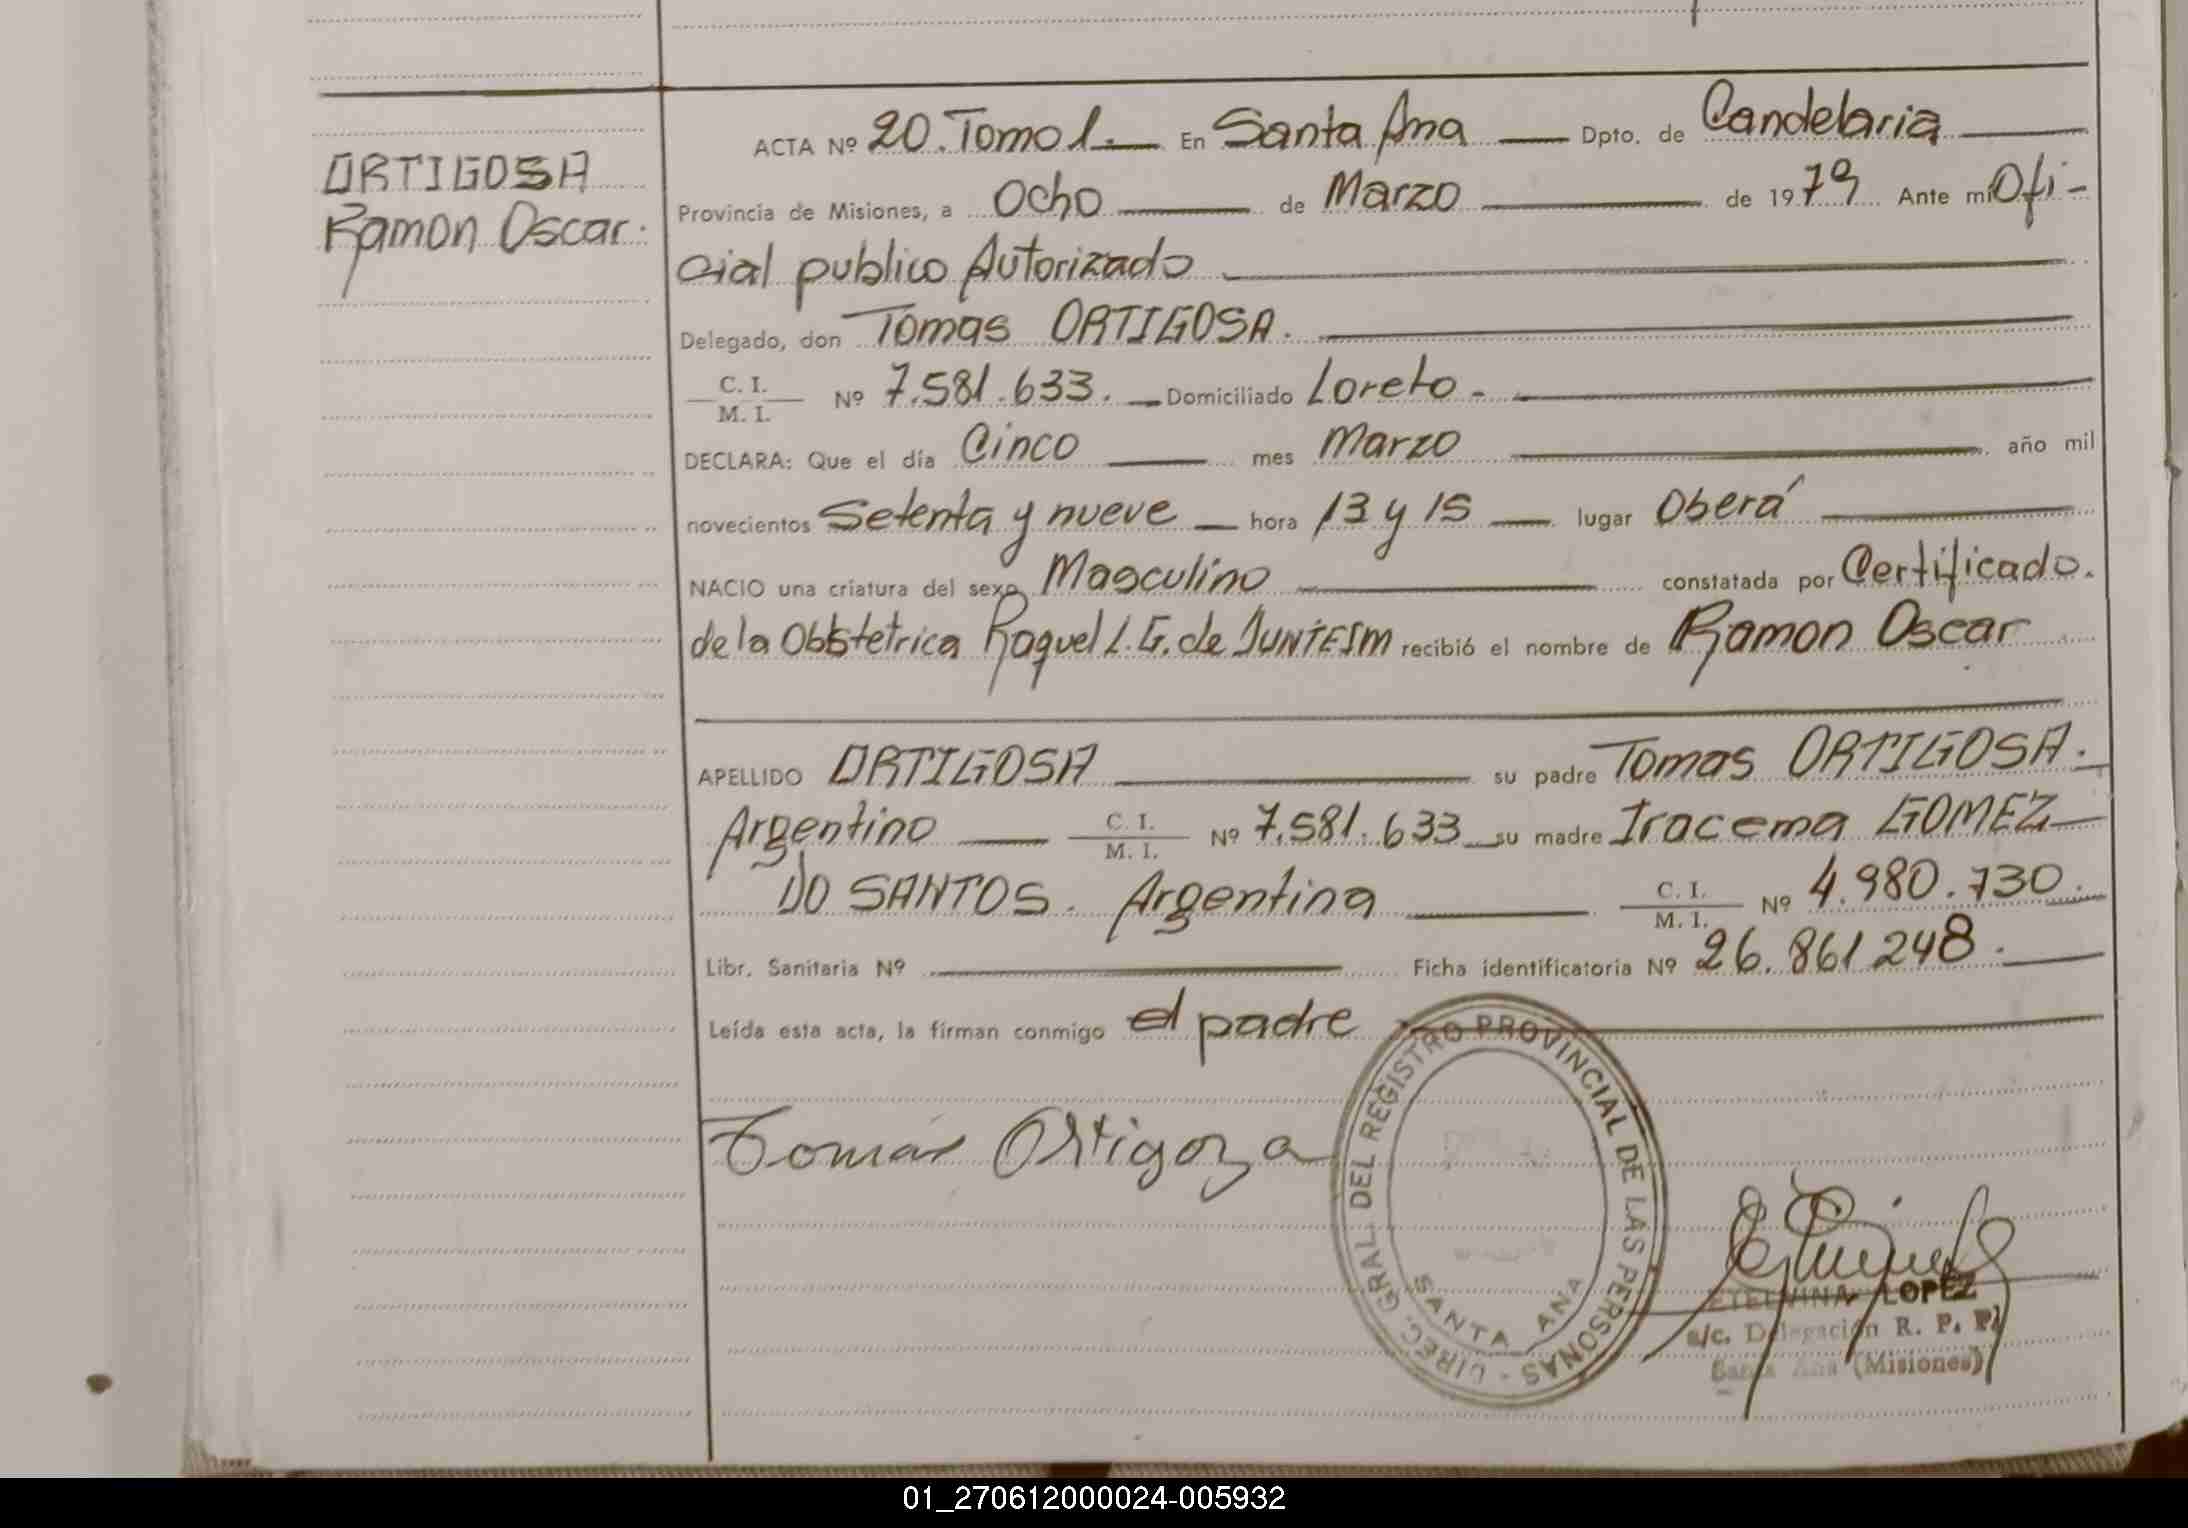 ORTIGOSA
Ramon Oscar.
ACTA Nº 20. Tomo 1. En Santa Ana Dpto. de Candelaria
Provincia de Misiones, a Ocho de Marzo de 1979 Ante mi Ofi-
cial publico Autorizado
Delegado, don Tomas ORTIGOSA.
C. I.
M. I.
Nº 7.581.633. Domiciliado Loreto.-
DECLARA: Que el día Cinco mes Marzo año mil
novecientos Setenta y nueve hora 13 y 15 lugar Oberá
NACIO una criatura del sexo Masculino constatada por Certificado.
de la Obbstetrica Raquel L. G. de recibió el nombre de Ramon Oscar
APELLIDO ORTIGOSA su padre Tomas ORTIGOSA.
Argentino C. I. M. I. Nº 7.581.633 su madre Iracema GOMEZ
DO SANTOS. Argentina C. I. M. I. Nº 4.980.730.
Libr. Sanitaria Nº Ficha identificatoria Nº 26.861248.
Leída esta acta, la firman conmigo el padre
Tomás Ortigoza
DIREC. GRAL. DEL REGISTRO PROVINCIAL DE LAS PERSONAS -
SANTA ANA
ETELVINA LOPEZ
a/c. Delegación R. P. P.
Santa Ana (Misiones)
01_270612000024-005932